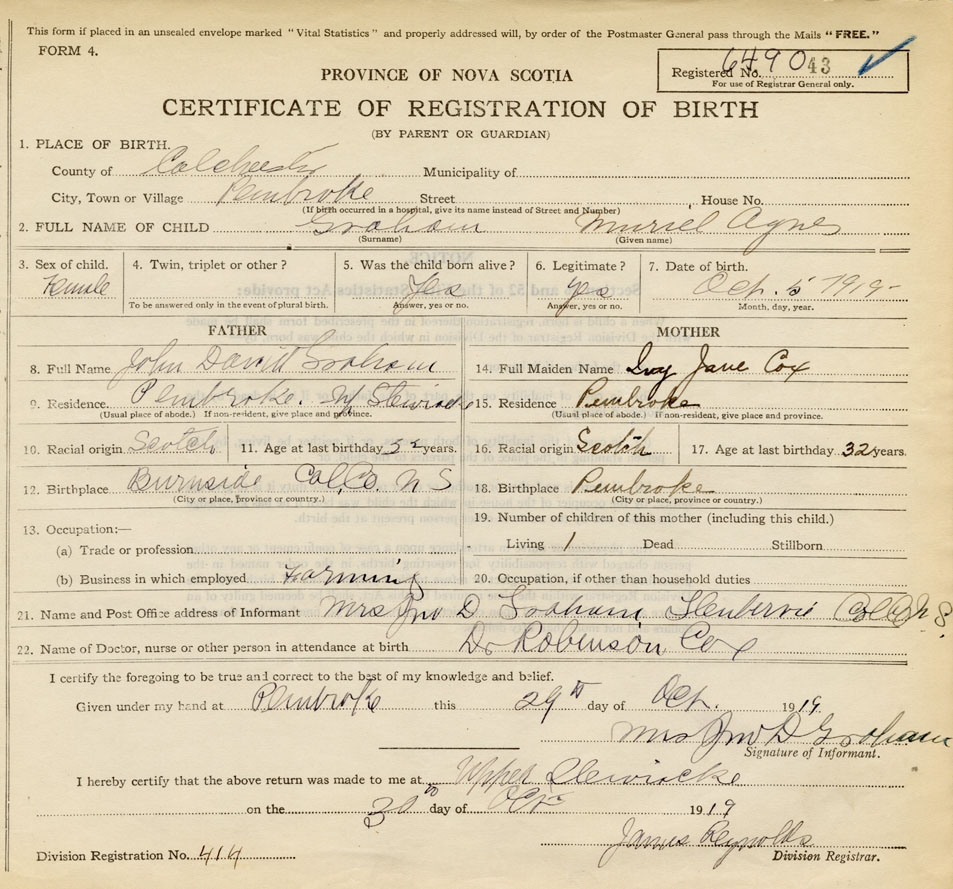 This form if placed in an unsealed envelope marked "Vital Statistics" and properly addressed will, by order of the Postmaster General pass through the Mails "FREE."
FORM 4.
Registered No. 649043
For use of Registrar General only.
PROVINCE OF NOVA SCOTIA
CERTIFICATE OF REGISTRATION OF BIRTH
(BY PARENT OR GUARDIAN)
1. PLACE OF BIRTH.
County of Colchester Municipality of
City, Town or Village Pembroke Street House No.
(If birth occurred in a hospital, give its name instead of Street and Number)
2. FULL NAME OF CHILD Graham Muriel Agnes
(Surname) (Given name)
3. Sex of child. 4. Twin, triplet or other? 5. Was the child born alive? 6. Legitimate? 7. Date of birth.
Female Yes Yes Oct. 5 1919
To be answered only in the event of plural birth. Answer, yes or no. Answer, yes or no. Month, day, year.
FATHER MOTHER
8. Full Name John David Graham 14. Full Maiden Name Ivy Jane Cox
9. Residence Pembroke. Stewiacke 15. Residence Pembroke
(Usual place of abode.) If non-resident, give place and province. (Usual place of abode.) If non-resident, give place and province.
10. Racial origin Scotch 11. Age at last birthday 32 years. 16. Racial origin Scotch 17. Age at last birthday 32 years.
12. Birthplace Burnside Col. Co. N S 18. Birthplace Pembroke
(City or place, province or country.) (City or place, province or country.)
13. Occupation:— 19. Number of children of this mother (including this child.)
(a) Trade or profession Living 1 Dead Stillborn
(b) Business in which employed Farming 20. Occupation, if other than household duties
21. Name and Post Office address of Informant Mrs Jno D Graham, Glenbervie Col Co N S.
22. Name of Doctor, nurse or other person in attendance at birth Dr Robinson Cox
I certify the foregoing to be true and correct to the best of my knowledge and belief.
Given under my hand at Pembroke this 29th day of Oct. 1919.
Mrs Jno D Graham
Signature of Informant.
I hereby certify that the above return was made to me at Upper Stewiacke
on the 30th day of Oct 1919
James Reynolds
Division Registration No. 414 Division Registrar.